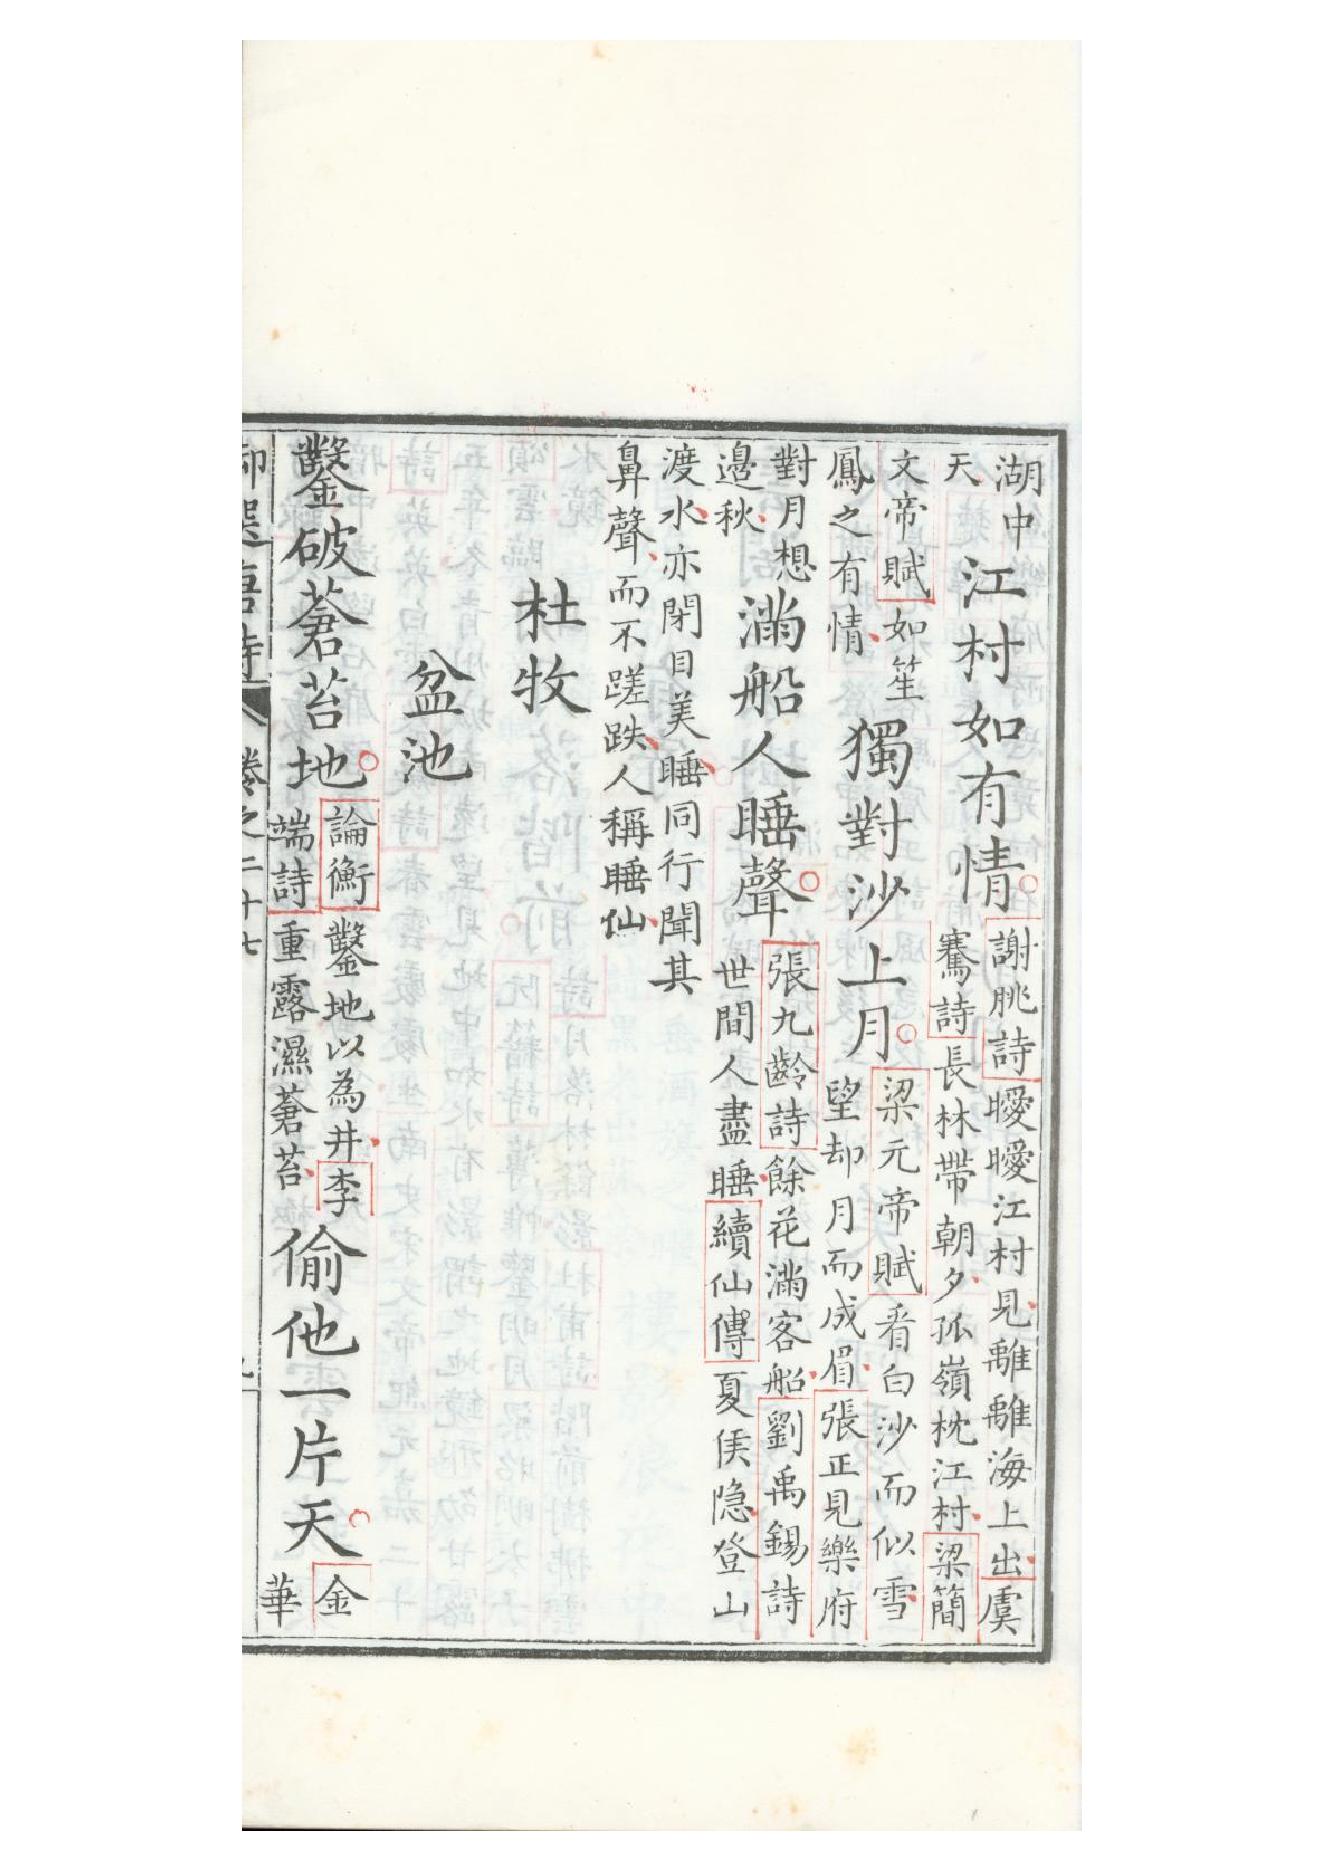 湖中
天
江村如有情
謝朓詩曖曖江村見離離海上出虞
騫詩長林帶朝夕孤嶺枕江村梁簡
文帝賦如笙
鳳之有情
獨對沙上月
梁元帝賦看白沙而似雪
望却月而成眉張正見樂府
對月想
邊秋
滿船人睡聲
張九齡詩餘花滿客船劉禹錫詩
世間人盡睡續仙傳夏侯隐登山
渡水亦閉目美睡同行聞其
鼻聲而不蹉跌人稱睡仙
杜牧
盆池
鑿破蒼苔地
論衡鑿地以為井李
端詩重露濕蒼苔
偷他一片天
金
華
御選唐詩 卷之二十七